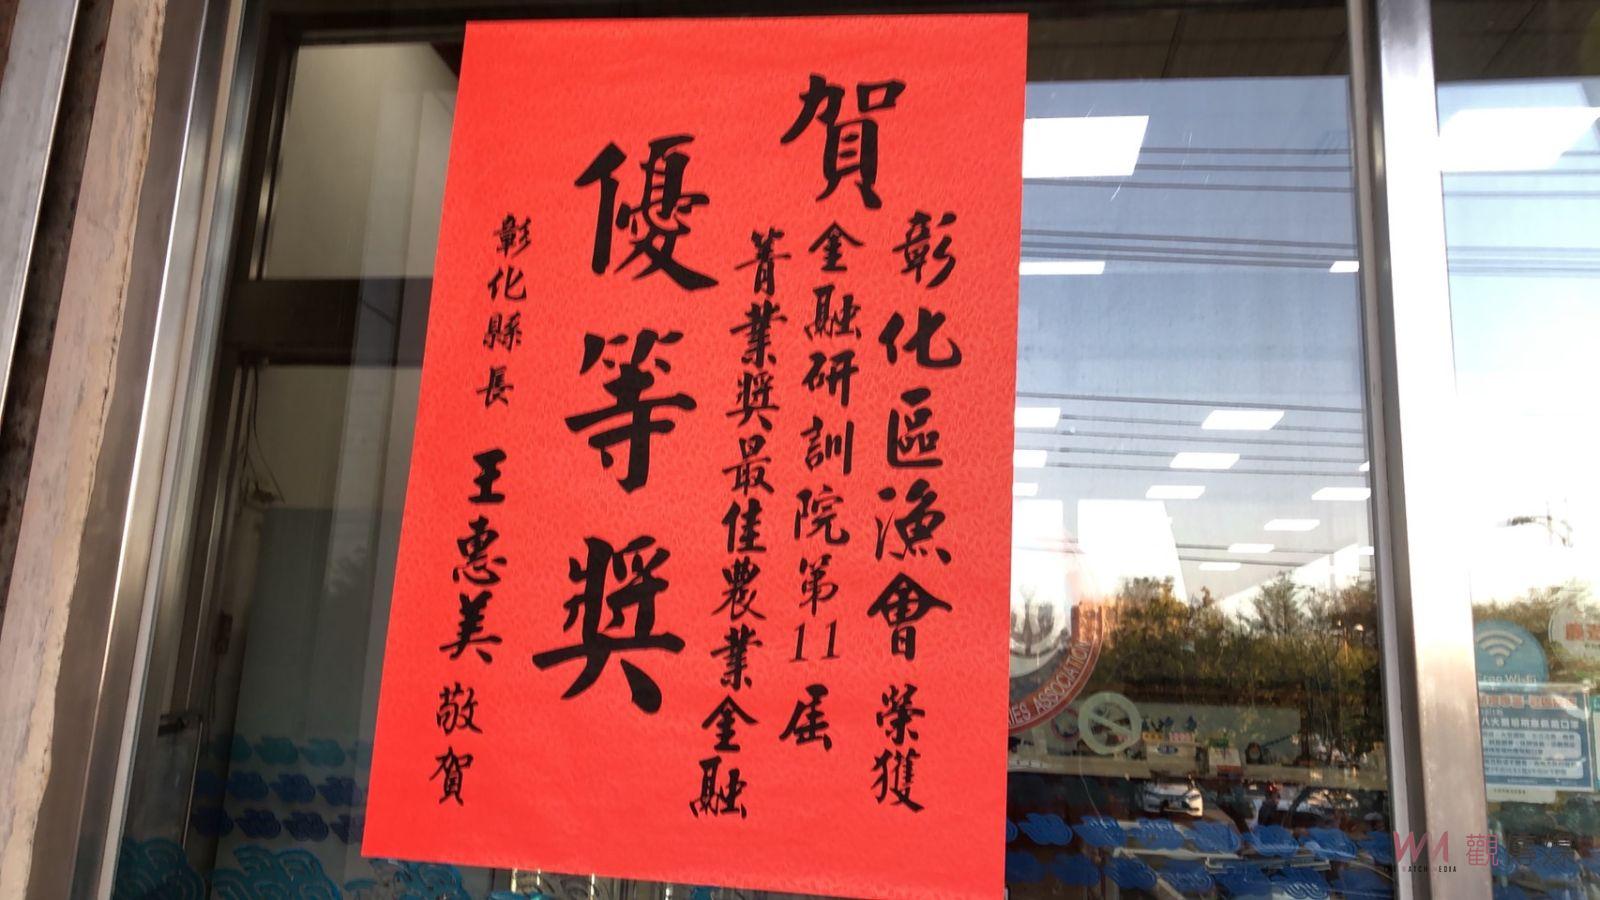 賀
彰化區漁會 榮獲
金融研訓院第11屆
菁業獎最佳農業金融
優等獎
彰化縣長 王惠美 敬賀
IES ASSOCIATION
Free Wi-Fi
觀傳媒
THE WATCH MEDIA